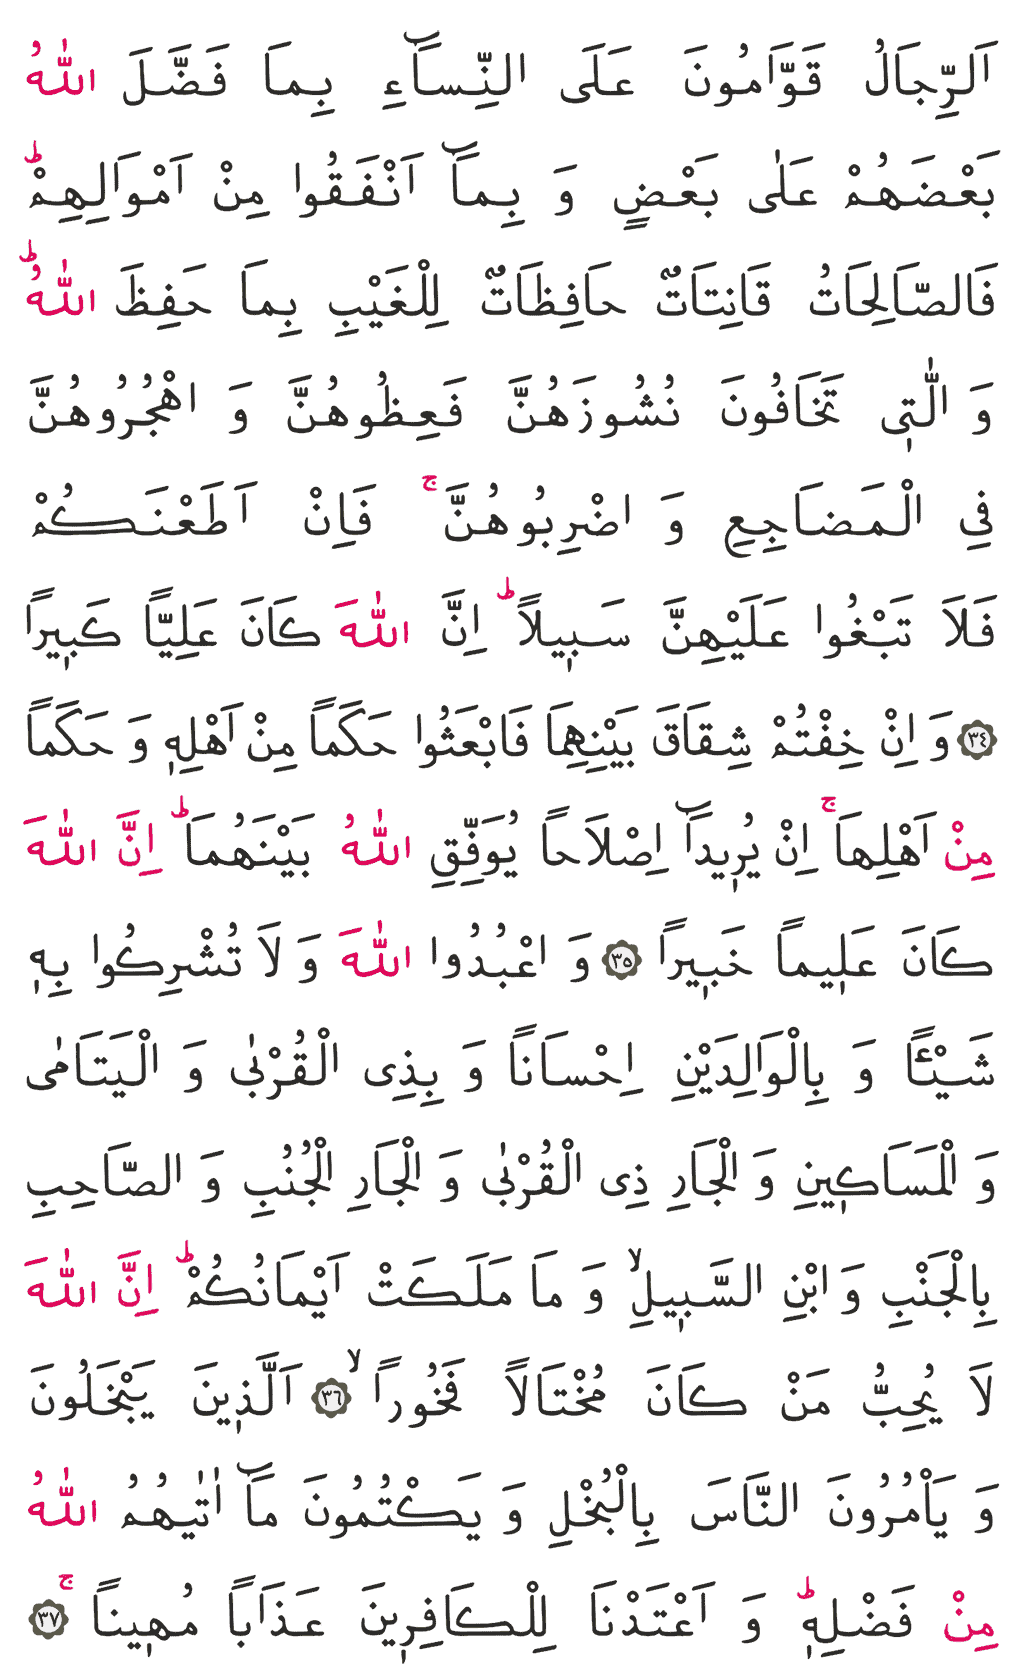 اَلرِّجَالُ قَوَّامُونَ عَلَى النِّسَٓاءِ بِمَا فَضَّلَ اللّٰهُ
بَعْضَهُمْ عَلٰى بَعْضٍ وَ بِمَٓا اَنْفَقُوا مِنْ اَمْوَالِهِمْۜ
فَالصَّالِحَاتُ قَانِتَاتٌ حَافِظَاتٌ لِلْغَيْبِ بِمَا حَفِظَ اللّٰهُۜ
وَ الّٰت۪ى تَخَافُونَ نُشُوزَهُنَّ فَعِظُوهُنَّ وَ اهْجُرُوهُنَّ
فِى الْمَضَاجِعِ وَ اضْرِبُوهُنَّۚ فَاِنْ اَطَعْنَكُمْ
فَلَا تَبْغُوا عَلَيْهِنَّ سَب۪يلًاۜ اِنَّ اللّٰهَ كَانَ عَلِيًّا كَب۪يرًا
﴿٣٤﴾ وَ اِنْ خِفْتُمْ شِقَاقَ بَيْنِهِمَا فَابْعَثُوا حَكَمًا مِنْ اَهْلِه۪ وَ حَكَمًا
مِنْ اَهْلِهَاۚ اِنْ يُر۪يدَٓا اِصْلَاحًا يُوَفِّقِ اللّٰهُ بَيْنَهُمَاۜ اِنَّ اللّٰهَ
كَانَ عَل۪يمًا خَب۪يرًا ﴿٣٥﴾ وَ اعْبُدُوا اللّٰهَ وَ لَا تُشْرِكُوا بِه۪
شَيْـًٔا وَ بِالْوَالِدَيْنِ اِحْسَانًا وَ بِذِى الْقُرْبٰى وَ الْيَتَامٰى
وَ الْمَسَاك۪ينِ وَ الْجَارِ ذِى الْقُرْبٰى وَ الْجَارِ الْجُنُبِ وَ الصَّاحِبِ
بِالْجَنْبِ وَ ابْنِ السَّب۪يلِۙ وَ مَا مَلَكَتْ اَيْمَانُكُمْۜ اِنَّ اللّٰهَ
لَا يُحِبُّ مَنْ كَانَ مُخْتَالًا فَخُورًاۙ ﴿٣٦﴾ اَلَّذ۪ينَ يَبْخَلُونَ
وَ يَاْمُرُونَ النَّاسَ بِالْبُخْلِ وَ يَكْتُمُونَ مَٓا اٰتٰيهُمُ اللّٰهُ
مِنْ فَضْلِه۪ۜ وَ اَعْتَدْنَا لِلْكَافِر۪ينَ عَذَابًا مُه۪ينًاۚ ﴿٣٧﴾